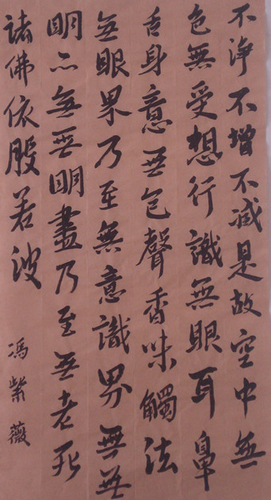 不淨不增不減是故空中無
色無受想行識無眼耳鼻
舌身意無色聲香味觸法
無眼界乃至無意識界無無
明亦無無明盡乃至無老死
諸佛依般若波
馮紫薇